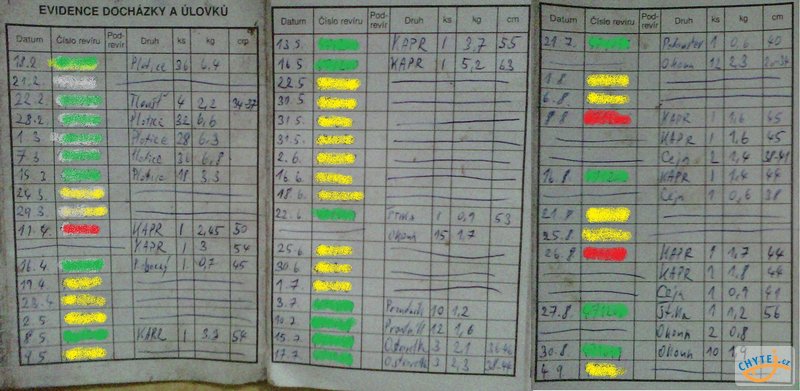 EVIDENCE DOCHÁZKY A ÚLOVKŮ
Datum Číslo revíru Pod-revír Druh ks kg cm
18.2. Plotice 36 6,4
21.2.
22.2. Tloušť 4 2,2 34-37
28.2. Plotice 32 6,6
1.3. Plotice 28 6,3
7.3. Plotice 36 6,8
15.3. Plotice 18 3,3
24.3.
29.3
11.4. KAPR 1 2,45 50
KAPR 1 3 54
16.4. 1 0,7 45
19.4
23.4
2.5
8.5 KAPR 1 54
9.5
Datum Číslo revíru Pod-revír Druh ks kg cm
13.5 KAPR 1 3,7 55
16.5 KAPR 1 5,2 63
22.5
30.5
31.5
31.5.
2.6.
16.6
18.6
22.6 Štika 1 0,9 53
Okoun 15 1,7
25.6
30.6
1.7
3.7 10 1,2
10.7 12 1,6
15.7 Ostroretka 3 2,1
17.7 Ostroretka 3 2,3 38-44
Datum Číslo revíru Pod-revír Druh ks kg cm
21.7. 1 0,6 40
Okoun 12 2,3
1.8
6.8.
8.8 KAPR 1 1,6 45
KAPR 1 1,6 45
Cejn 2 1,4 38-41
16.8 KAPR 1 1,4 44
Cejn 1 0,6 38
21.8
25.8.
26.8 KAPR 1 1,7 44
KAPR 1 1,8 44
Cejn 1 0,9 41
27.8 Štika 1 1,2 56
Okoun 2 0,8
30.8 Okoun 10
4.9
CHYTEJ.cz